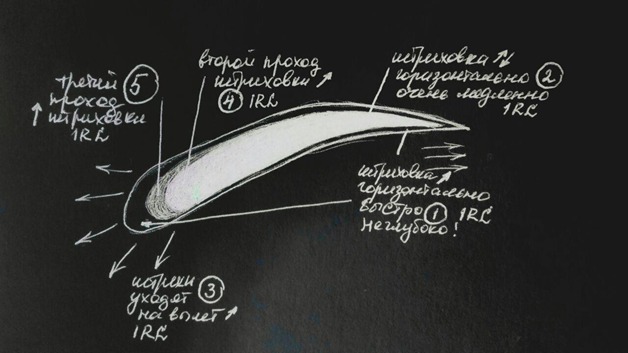 третий ⑤
↑ проход
штриховки
1RL
второй проход
штриховки ↗
④ 1RL
штриховка ↑↓
горизонтально ②
очень медленно
1RL
штриховка ↗
горизонтально
быстро ① 1RL
неглубоко!
штрихи ③
уходят
на вылет ↗
1RL